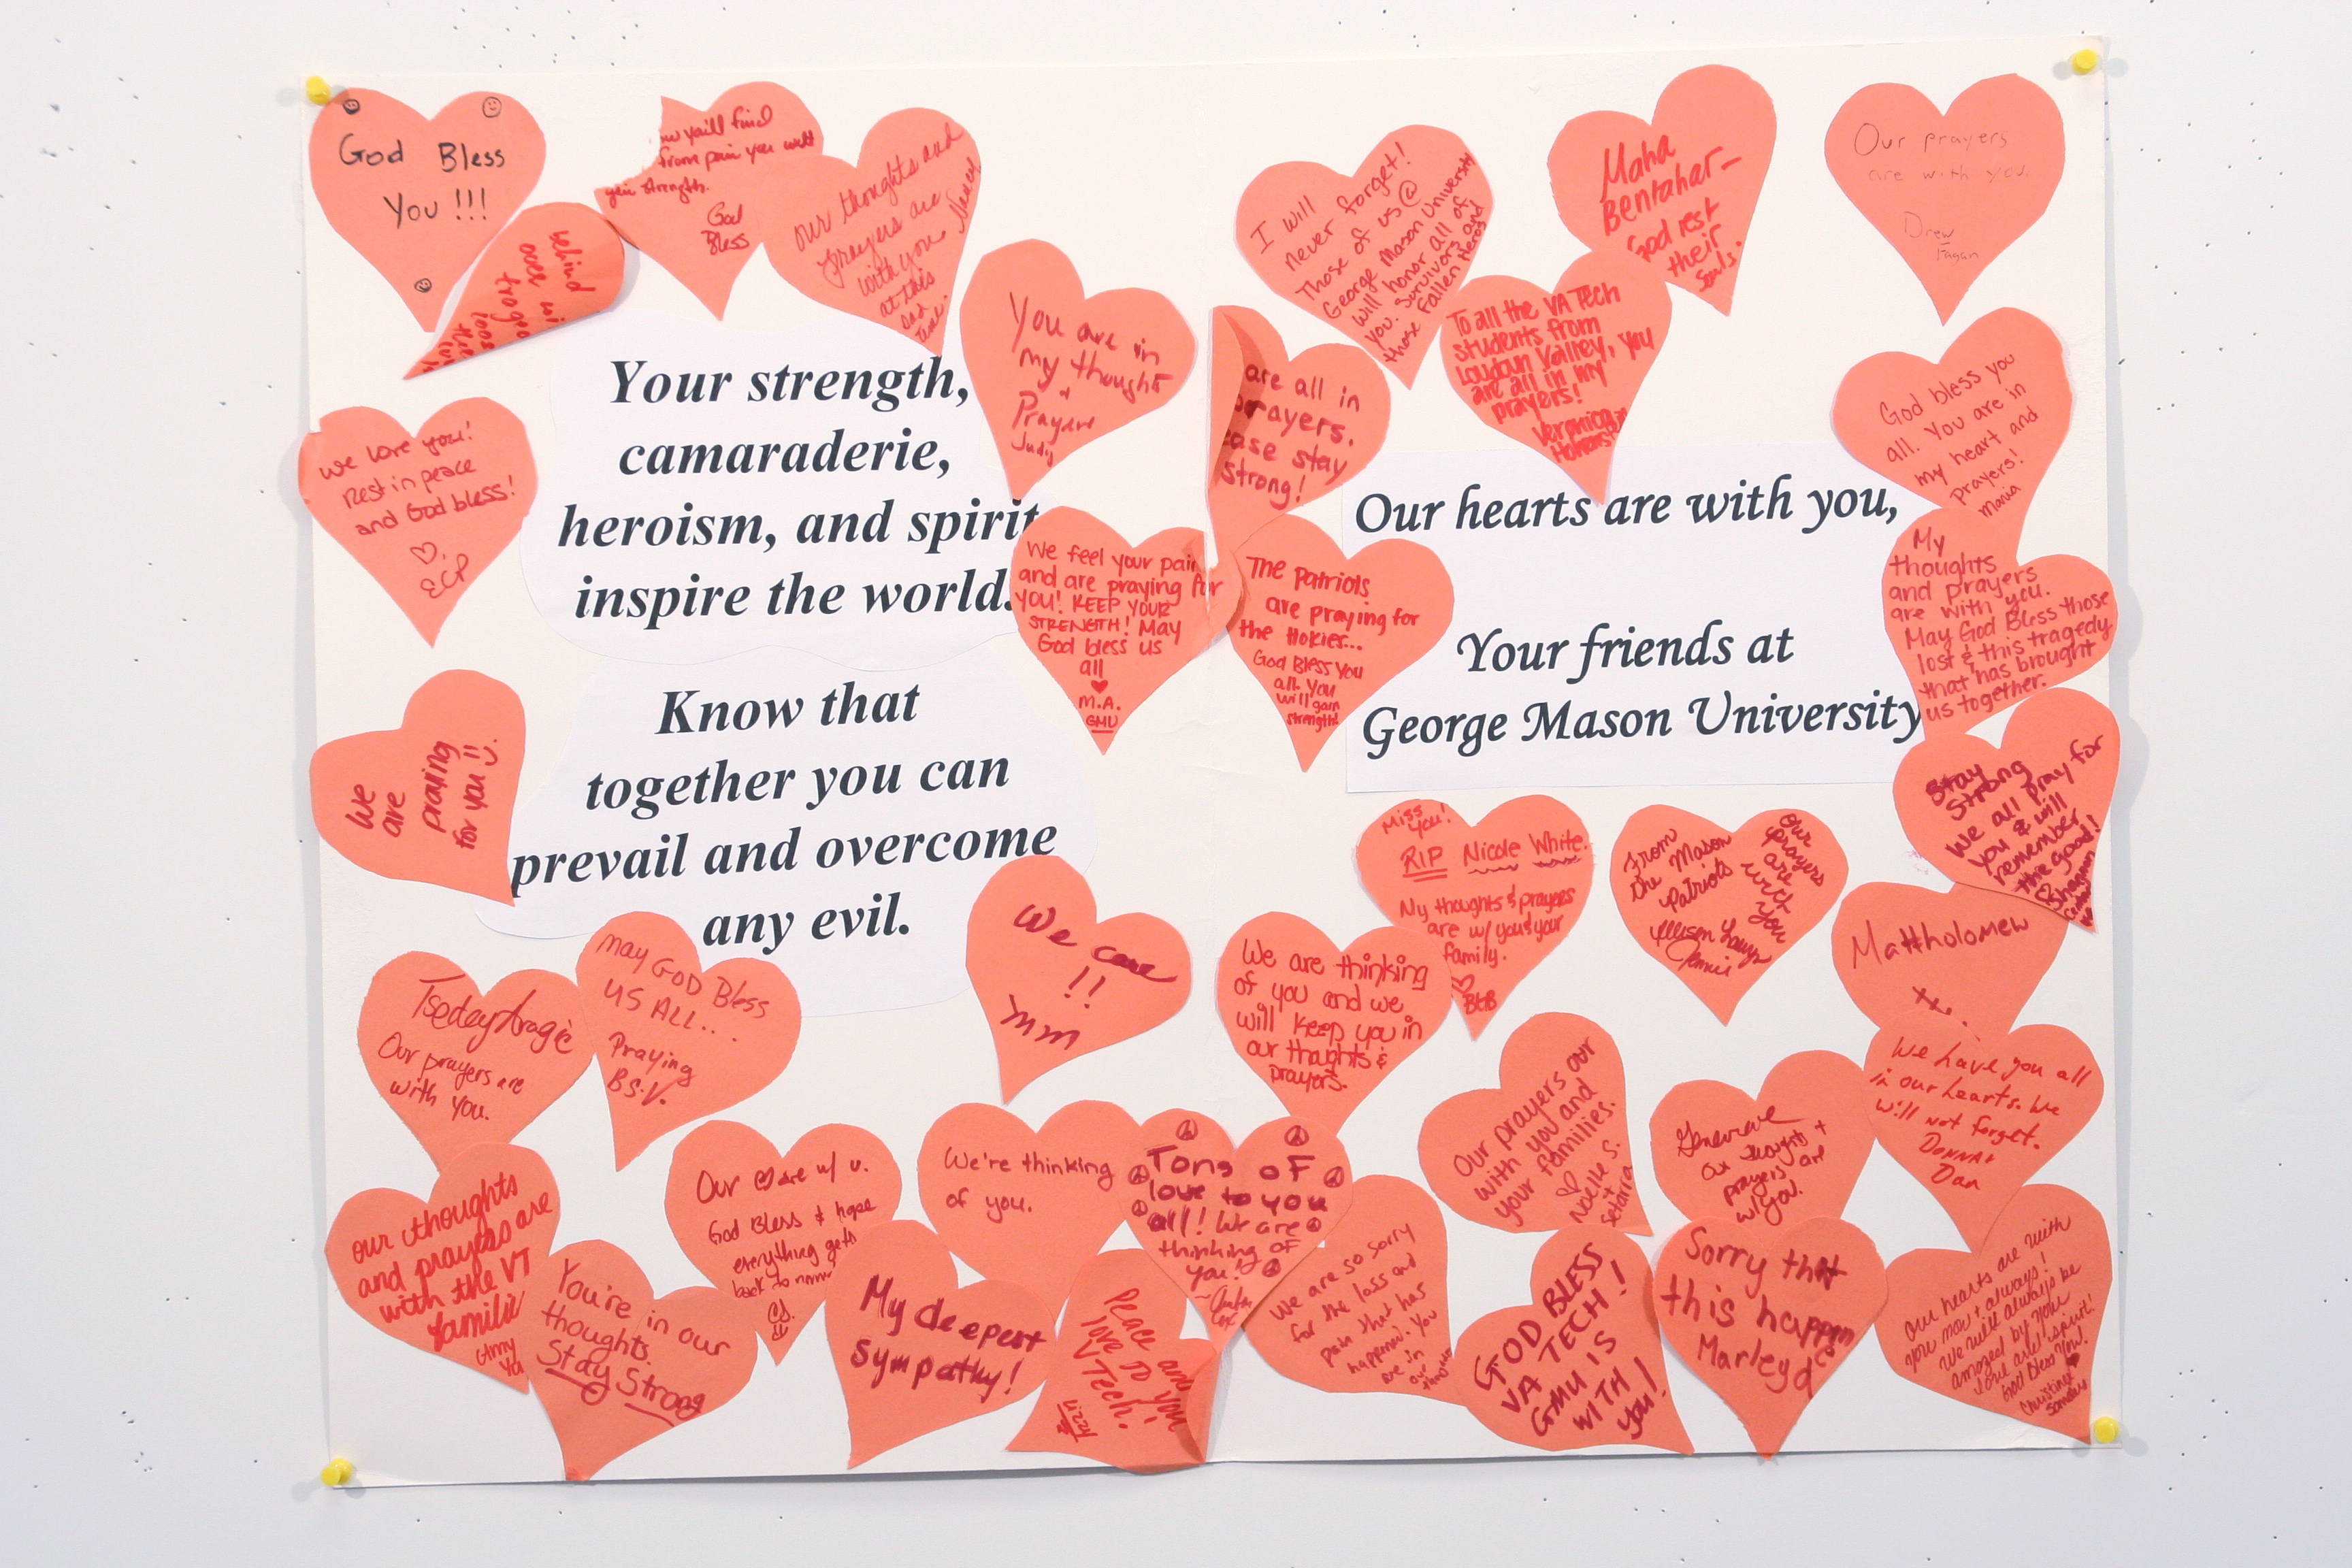 God Bless
You !!!
you'll find
from pain you
strength.
God
Bless
our thoughts and
prayers are
with you
at this
sad
time.
Nancy
behind
over
You are in
my thoughts
+
Prayers
Judy
Your strength,
camaraderie,
heroism, and spirit
inspire the world.
we love you!
Rest in peace
and God bless!
ECP
We
are
praying
for you!!
Know that
together you can
prevail and overcome
any evil.
We feel your pain
and are praying for
you! KEEP YOUR
STRENGTH! May
God bless us
all
M.A.
GMU
We care
!!
mm
Tseday Aragie
Our prayers are
with you.
may GOD Bless
US ALL...
Praying
B.S.V.
our thoughts
and prayers are
with the VT
familie
Amy
Ya
You're in our
thoughts.
Stay Strong
Our are w/ u.
God Bless & hope
everything gets
back to
My deepest
sympathy!
We're thinking
of you.
Peace and
love to you
VTech.
Lizzy
Tons of
love to you
all! We are
thinking of
you!
I will
never forget!
Those of us @
George Mason University
will honor all of
you. Survivors and
those Fallen Heros
Maha
Bentahar-
God rest
their
souls.
Our prayers
are with you.
Drew
Fagan
are all in
prayers.
ease stay
strong!
To all the VA Tech
students from
Loudoun Valley, you
are all in my
prayers!
Veronica
God bless you
all. You are in
my heart and
prayers!
Maria
The Patriots
are praying for
the Hokies...
God Bless You
all. You
will gain
strength!
Our hearts are with you,
Your friends at
George Mason University
My
thoughts
and prayers
are with you.
May God Bless those
lost & this tragedy
that has brought
us together.
Stay
strong
We all pray for
you & will
remember
the good!
Miss
you!
RIP Nicole White.
My thoughts & prayers
are w/ you & your
family.
BLB
From
the Mason
Patriots
our
prayers
are
with
you
Mattholomew
We are thinking
of you and we
will keep you in
our thoughts &
prayers.
Our prayers our
with you and
your families.
Noelle S.
+
Setarra
Genevieve
Our thoughts +
prayers are
w/ you.
We have you all
in our hearts. We
will not forget.
DONNA +
Dan
We are so sorry
for the loss and
pain that has
happened. You
are in
our
GOD BLESS
VA TECH!
GMU IS
WITH
you!
Sorry that
this happen
Marleyd
our hearts are with
you now & always!
We will always be
amazed by your
love and spirit!
God Bless You!
Christine